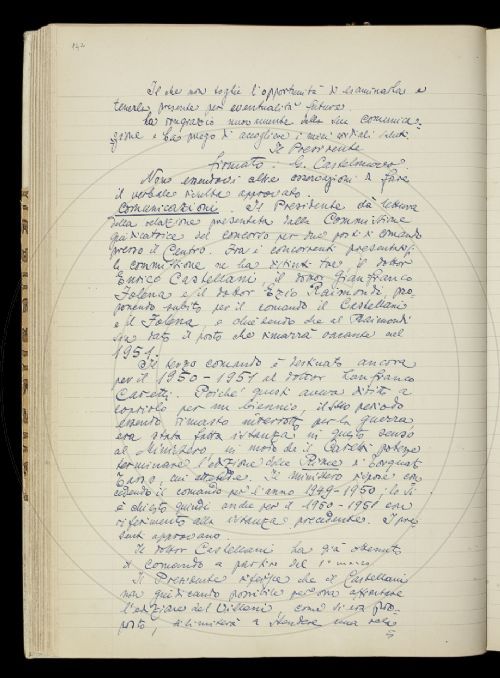 142
Il che non toglie l'opportunità di esaminarla e
tenerla presente per eventualità future.
La ringrazio nuovamente della sua comunica-
zione e La prego di accogliere i miei cordiali saluti.
Il Presidente
firmato: G. Castelnuovo.
Non essendovi altre osservazioni da fare
il verbale risulta approvato.
Comunicazione. Il Presidente dà lettura
della relazione presentata dalla Commissione
giudicatrice del concorso per due posti di comando
presso il Centro. Fra i concorrenti presentatisi
la commissione ne ha distinti tre, il dottor
Enrico Castellani, il dottor Gianfranco
Folena e il dottor Ezio Raimondi, pro-
ponendo subito per il comando il Castellani
e il Folena, e che al Raimondi
sia dato il posto che rimarrà vacante nel
1951.
Il terzo comando è destinato ancora
per il 1950-1951 al dottor Lanfranco
Caretti. Poiché questi aveva diritto a
coprirlo per un biennio, il suo periodo
essendo rimasto interrotto per la guerra
era stata fatta istanza in questo senso
al Ministero, in modo che il Caretti potesse
terminare l'edizione delle Rime di Torquato
Tasso, cui attende. Il ministero rispose con-
cedendo il comando per l'anno 1949-1950; lo si
è chiesto quindi anche per il 1950-1951 con
riferimento alla istanza precedente. I pre-
senti approvano.
Il dottor Castellani ha già ottenuto
il comando a partire dal 1° marzo.
Il Presidente riferisce che il Castellani
non giudicando possibile per ora affrontare
l'edizione del Villani, come si era pro-
posto, si limiterà a stendere una rela-